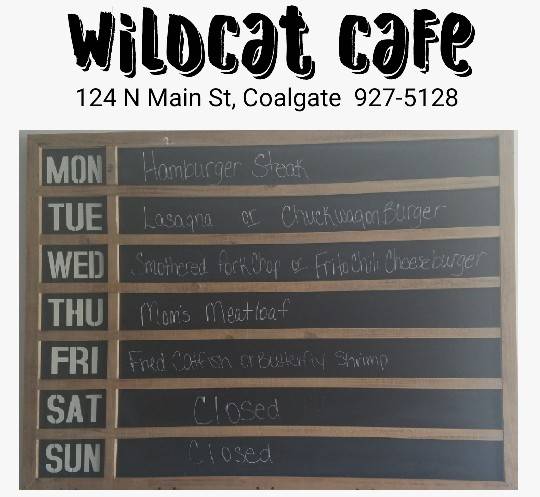 Wildcat Cafe
124 N Main St, Coalgate 927-5128
MON Hamburger Steak
TUE Lasagna or Chuckwagon Burger
WED Smothered Pork Chop or Frito Chili Cheeseburger
THU Mom's Meatloaf
FRI Fried Catfish or Butterfly Shrimp
SAT Closed
SUN Closed